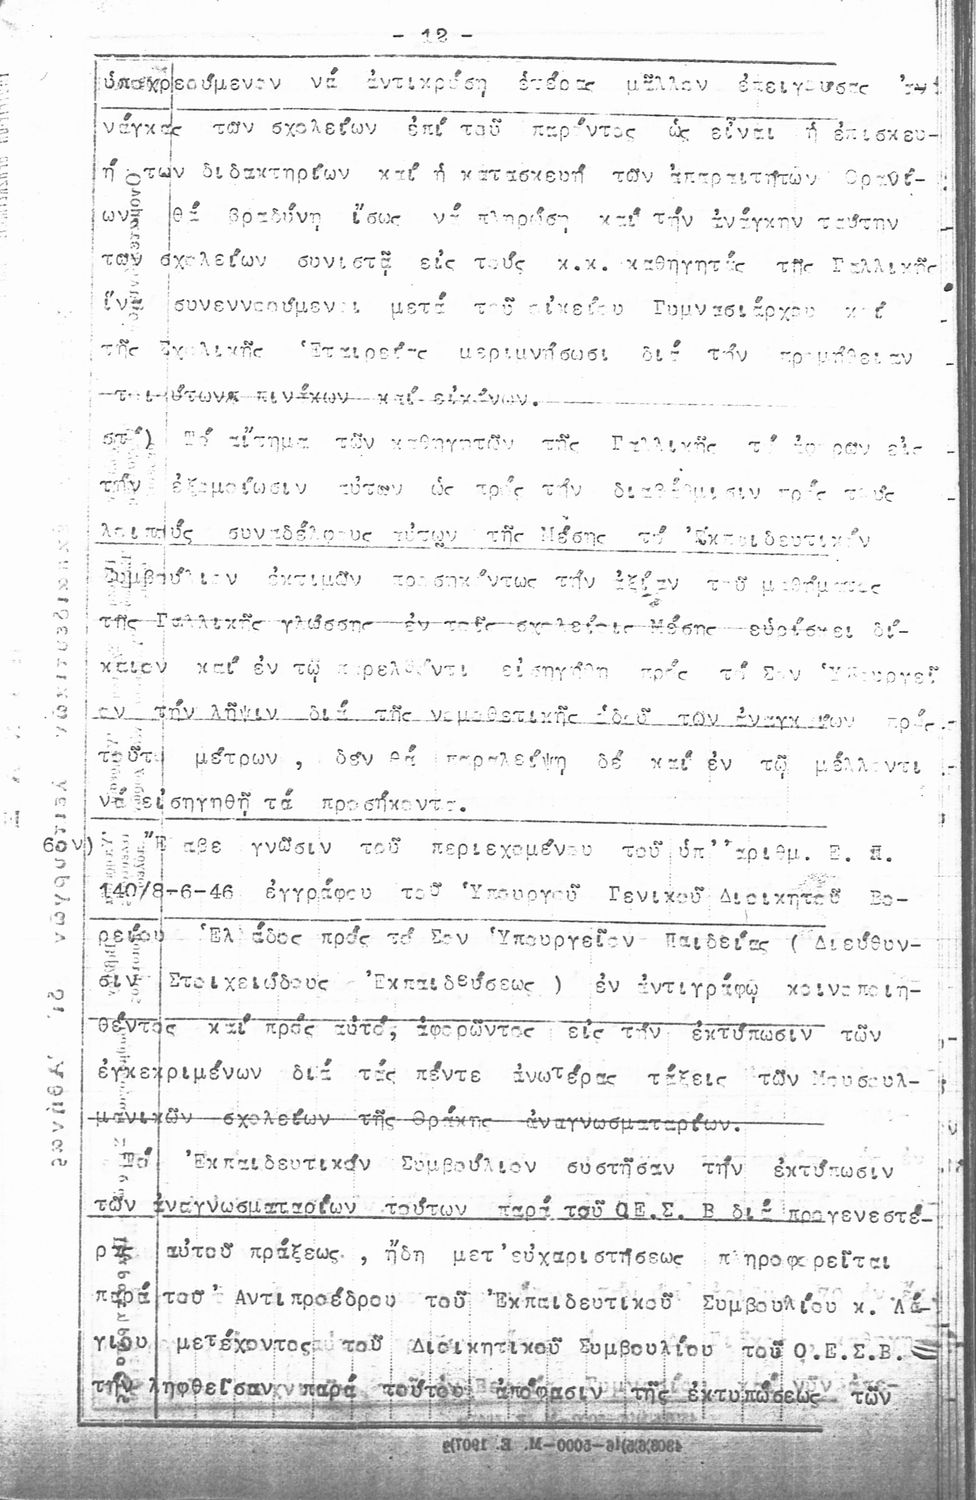 - 12 -
ὑποχρεούμενον νά ἀντικρύση ἑτέρας μᾶλλον ἐπειγούσας ἀ-
νάγκας τῶν σχολείων ἐπί τοῦ παρόντος ὡς εἶναι ἡ ἐπισκευ-
ή των διδακτηρίων καί ἡ κατασκευή τῶν ἀπαραιτήτων Θρανί-
ων, θά βραδύνη ἴσως νά πληρώση καί τήν ἀνάγκην ταύτην
τῶν σχολείων συνιστᾷ εἰς τούς κ.κ. καθηγητάς τῆς Γαλλικῆς
ἵνα συνεννοούμενοι μετά τοῦ οἰκείου Γυμνασιάρχου καί
τῆς Σχολικῆς Ἑταιρείας μεριμνήσωσι διά τήν προμήθειαν
τοιούτων πινάκων καί εἰκόνων.
στ´) Τό αἴτημα τῶν καθηγητῶν τῆς Γαλλικῆς τό ἀφορῶν εἰς
τήν ἐξομοίωσιν αὐτῶν ὡς πρός τήν διαβάθμισιν πρός τούς
λοιπούς συναδέλφους αὐτων τῆς Μέσης τό Ἐκπαιδευτικόν
Συμβούλιον ἐκτιμῶν προσηκόντως τήν ἀξίαν τοῦ μαθήματος
τῆς Γαλλικῆς γλώσσης ἐν τοῖς σχολείοις Μέσης εὑρίσκει δί-
καιον καί ἐν τῷ παρελθόντι εἰσηγήθη πρός τό Σον Ὑπουργεῖ
ον τήν λῆψιν διά τῆς νομοθετικῆς ὁδοῦ τῶν ἀναγκαίων πρός
τοῦτο μέτρων , δέν θά παραλείψη δέ καί ἐν τῷ μέλλοντι
νά εἰσηγηθῇ τά προσήκοντα.
6ον) Ἔλαβε γνῶσιν τοῦ περιεχομένου τοῦ ὑπ' ἀριθμ. Ε. Π.
140/8-6-46 ἐγγράφου τοῦ Ὑπουργοῦ Γενικοῦ Διοικητοῦ Βο-
ρείου Ἑλλάδος πρός τό Σον Ὑπουργεῖον Παιδείας ( Διεύθυν-
σιν Στοιχειώδους Ἐκπαιδεύσεως ) ἐν ἀντιγράφῳ κοινοποιη-
θέντος καί πρός αὐτό, ἀφορῶντος εἰς τήν ἐκτύπωσιν τῶν
ἐγκεκριμένων διά τάς πέντε ἀνωτέρας τάξεις τῶν Μουσουλ-
μανικῶν σχολείων τῆς Θράκης ἀναγνωσματαρίων.
Τό Ἐκπαιδευτικόν Συμβούλιον συστῆσαν τήν ἐκτύπωσιν
τῶν ἀναγνωσματαρίων τούτων παρά τοῦ ΟΕ.Σ. Β διά προγενεστέ-
ρας αὐτοῦ πράξεως , ἤδη μετ'εὐχαριστήσεως πληροφορεῖται
παρά τοῦ Ἀντιπροέδρου τοῦ Ἐκπαιδευτικοῦ Συμβουλίου κ. Λά-
γιου μετέχοντος τοῦ Διοικητικοῦ Συμβουλίου τοῦ Ο.Ε.Σ.Β.
τήν ληφθεῖσαν παρά τούτου ἀπόφασιν τῆς ἐκτυπώσεως τῶν